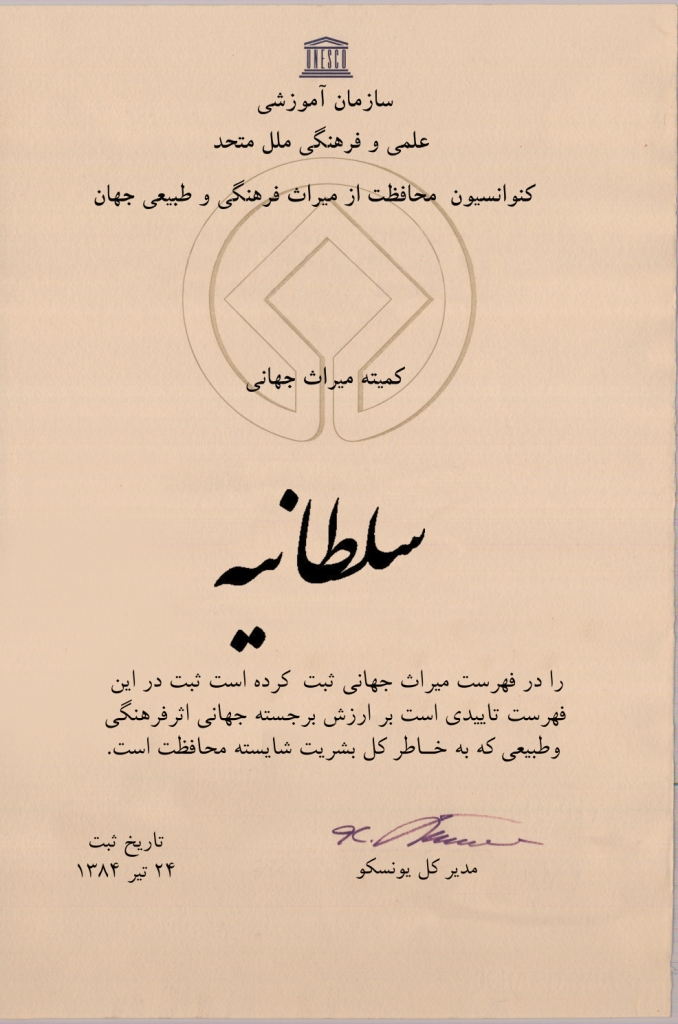 UNESCO
سازمان آموزشی
علمی و فرهنگی ملل متحد
کنوانسیون محافظت از میراث فرهنگی و طبیعی جهان
کمیته میراث جهانی
سلطانیه
را در فهرست میراث جهانی ثبت کرده است ثبت در این
فهرست تاییدی است بر ارزش برجسته جهانی اثرفرهنگی
وطبیعی که به خاطر کل بشریت شایسته محافظت است.
تاریخ ثبت
۲۴ تیر ۱۳۸۴
مدیر کل یونسکو